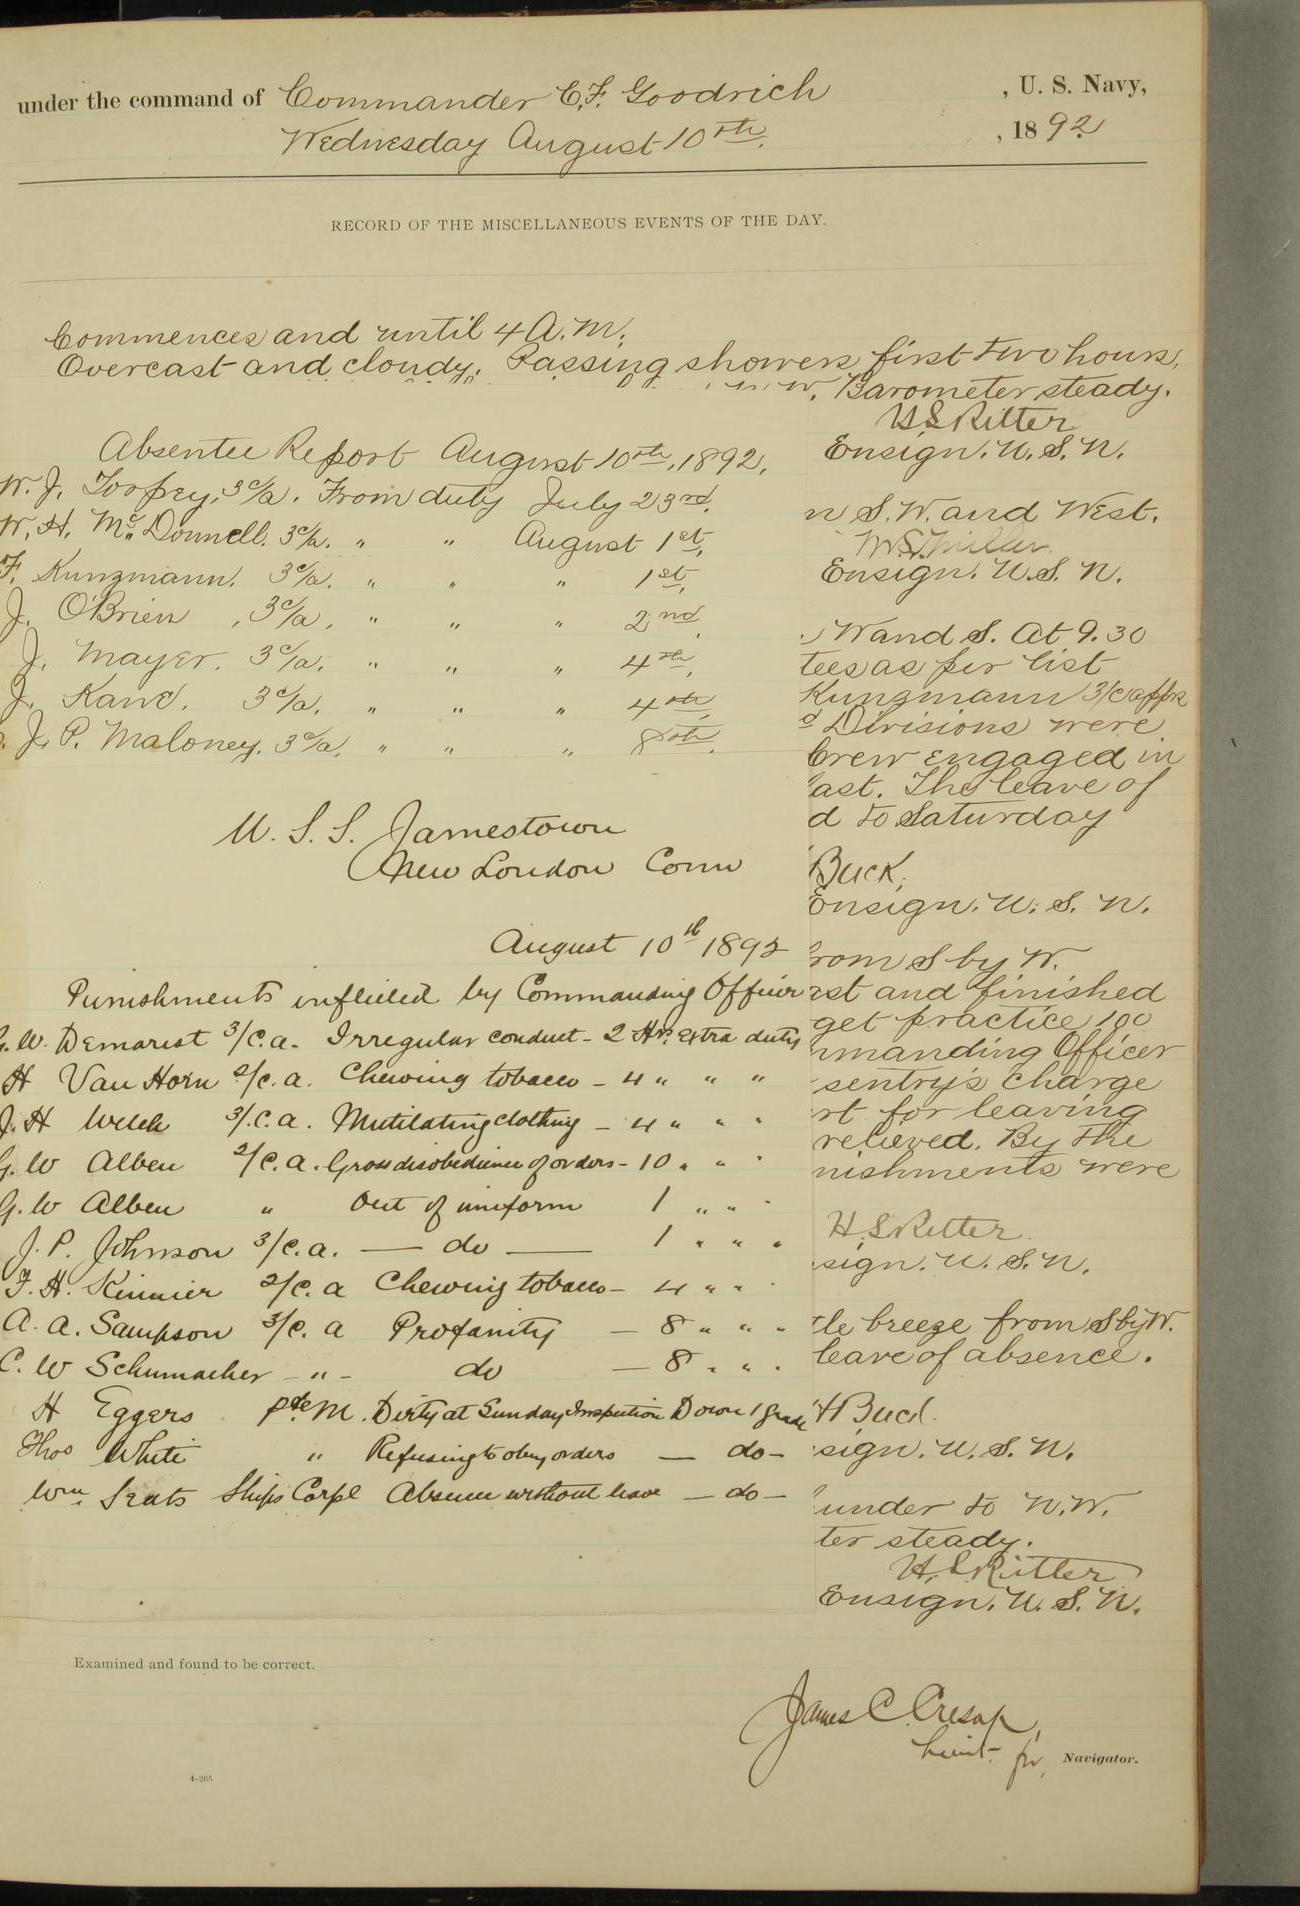 under the command of Commander C.F. Goodrich , U. S. Navy,
Wednesday August 10th. , 1892
RECORD OF THE MISCELLANEOUS EVENTS OF THE DAY.
Commences and until 4 A.M.
Overcast and cloudy. Passing showers first two hours.
Barometer steady.
H S Ritter
Ensign. U. S. N.
Absentee Report August 10th, 1892.
W. J. Torfrey, 3c/a. From duty July 23rd.
W. H. McDonnell. 3c/a. " " August 1st.
F. Kunzmann. 3c/a. " " " 1st.
J. O'Brien , 3c/a. " " " 2nd.
J. Mayer. 3c/a. " " " 4th.
J. Kane. 3c/a. " " " 4th.
J. P. Maloney. 3c/a. " " " 8th.
U. S. S. Jamestown
New London Conn
August 10th 1892
Punishments inflicted by Commanding Officer
G. W. Demarest 3/c. a. Irregular conduct - 2 Hrs. extra duty
H Van Horn 2/c. a. Chewing tobacco - 4 " " "
J. H Welch 3/c. a. Mutilating clothing - 4 " " "
G. W Alben 2/c. a. Gross disobedience of orders - 10 " " "
G. W Alben " Out of uniform 1 " " "
J. P. Johnson 3/c. a. — do — 1 " " "
F. H. Kinnier 2/c. a Chewing tobacco - 4 " " "
A. A. Sampson 3/c. a Profanity — 8 " " "
C. W Schumacher - " - do — 8 " " "
H Eggers Pte M. Dirty at Sunday Inspection Down 1 grade
Thos White " Refusing to obey orders — do -
Wm. Seats Ships Corpl Absence without leave - do -
n S. W. and West.
M. S. Miller
Ensign. U. S. N.
W and S. At 9.30
tees as per list
Kunzmann 3/c apprs
d Divisions were
Crew engaged in
ast. The leave of
d to Saturday
Buck,
Ensign. U. S. N.
from S by W.
ast and finished
get practice 100
mmanding Officer
sentry's charge
rt for leaving
relieved. By the
nishments were
H. S Ritter
sign. U. S. N.
tle breeze from S by W.
leave of absence.
H Buck.
sign. U. S. N.
under to N. W.
ter steady.
H. S Ritter
Ensign. U. S. N.
Examined and found to be correct.
James C. Cresap,
Lieut. for, Navigator.
4-265